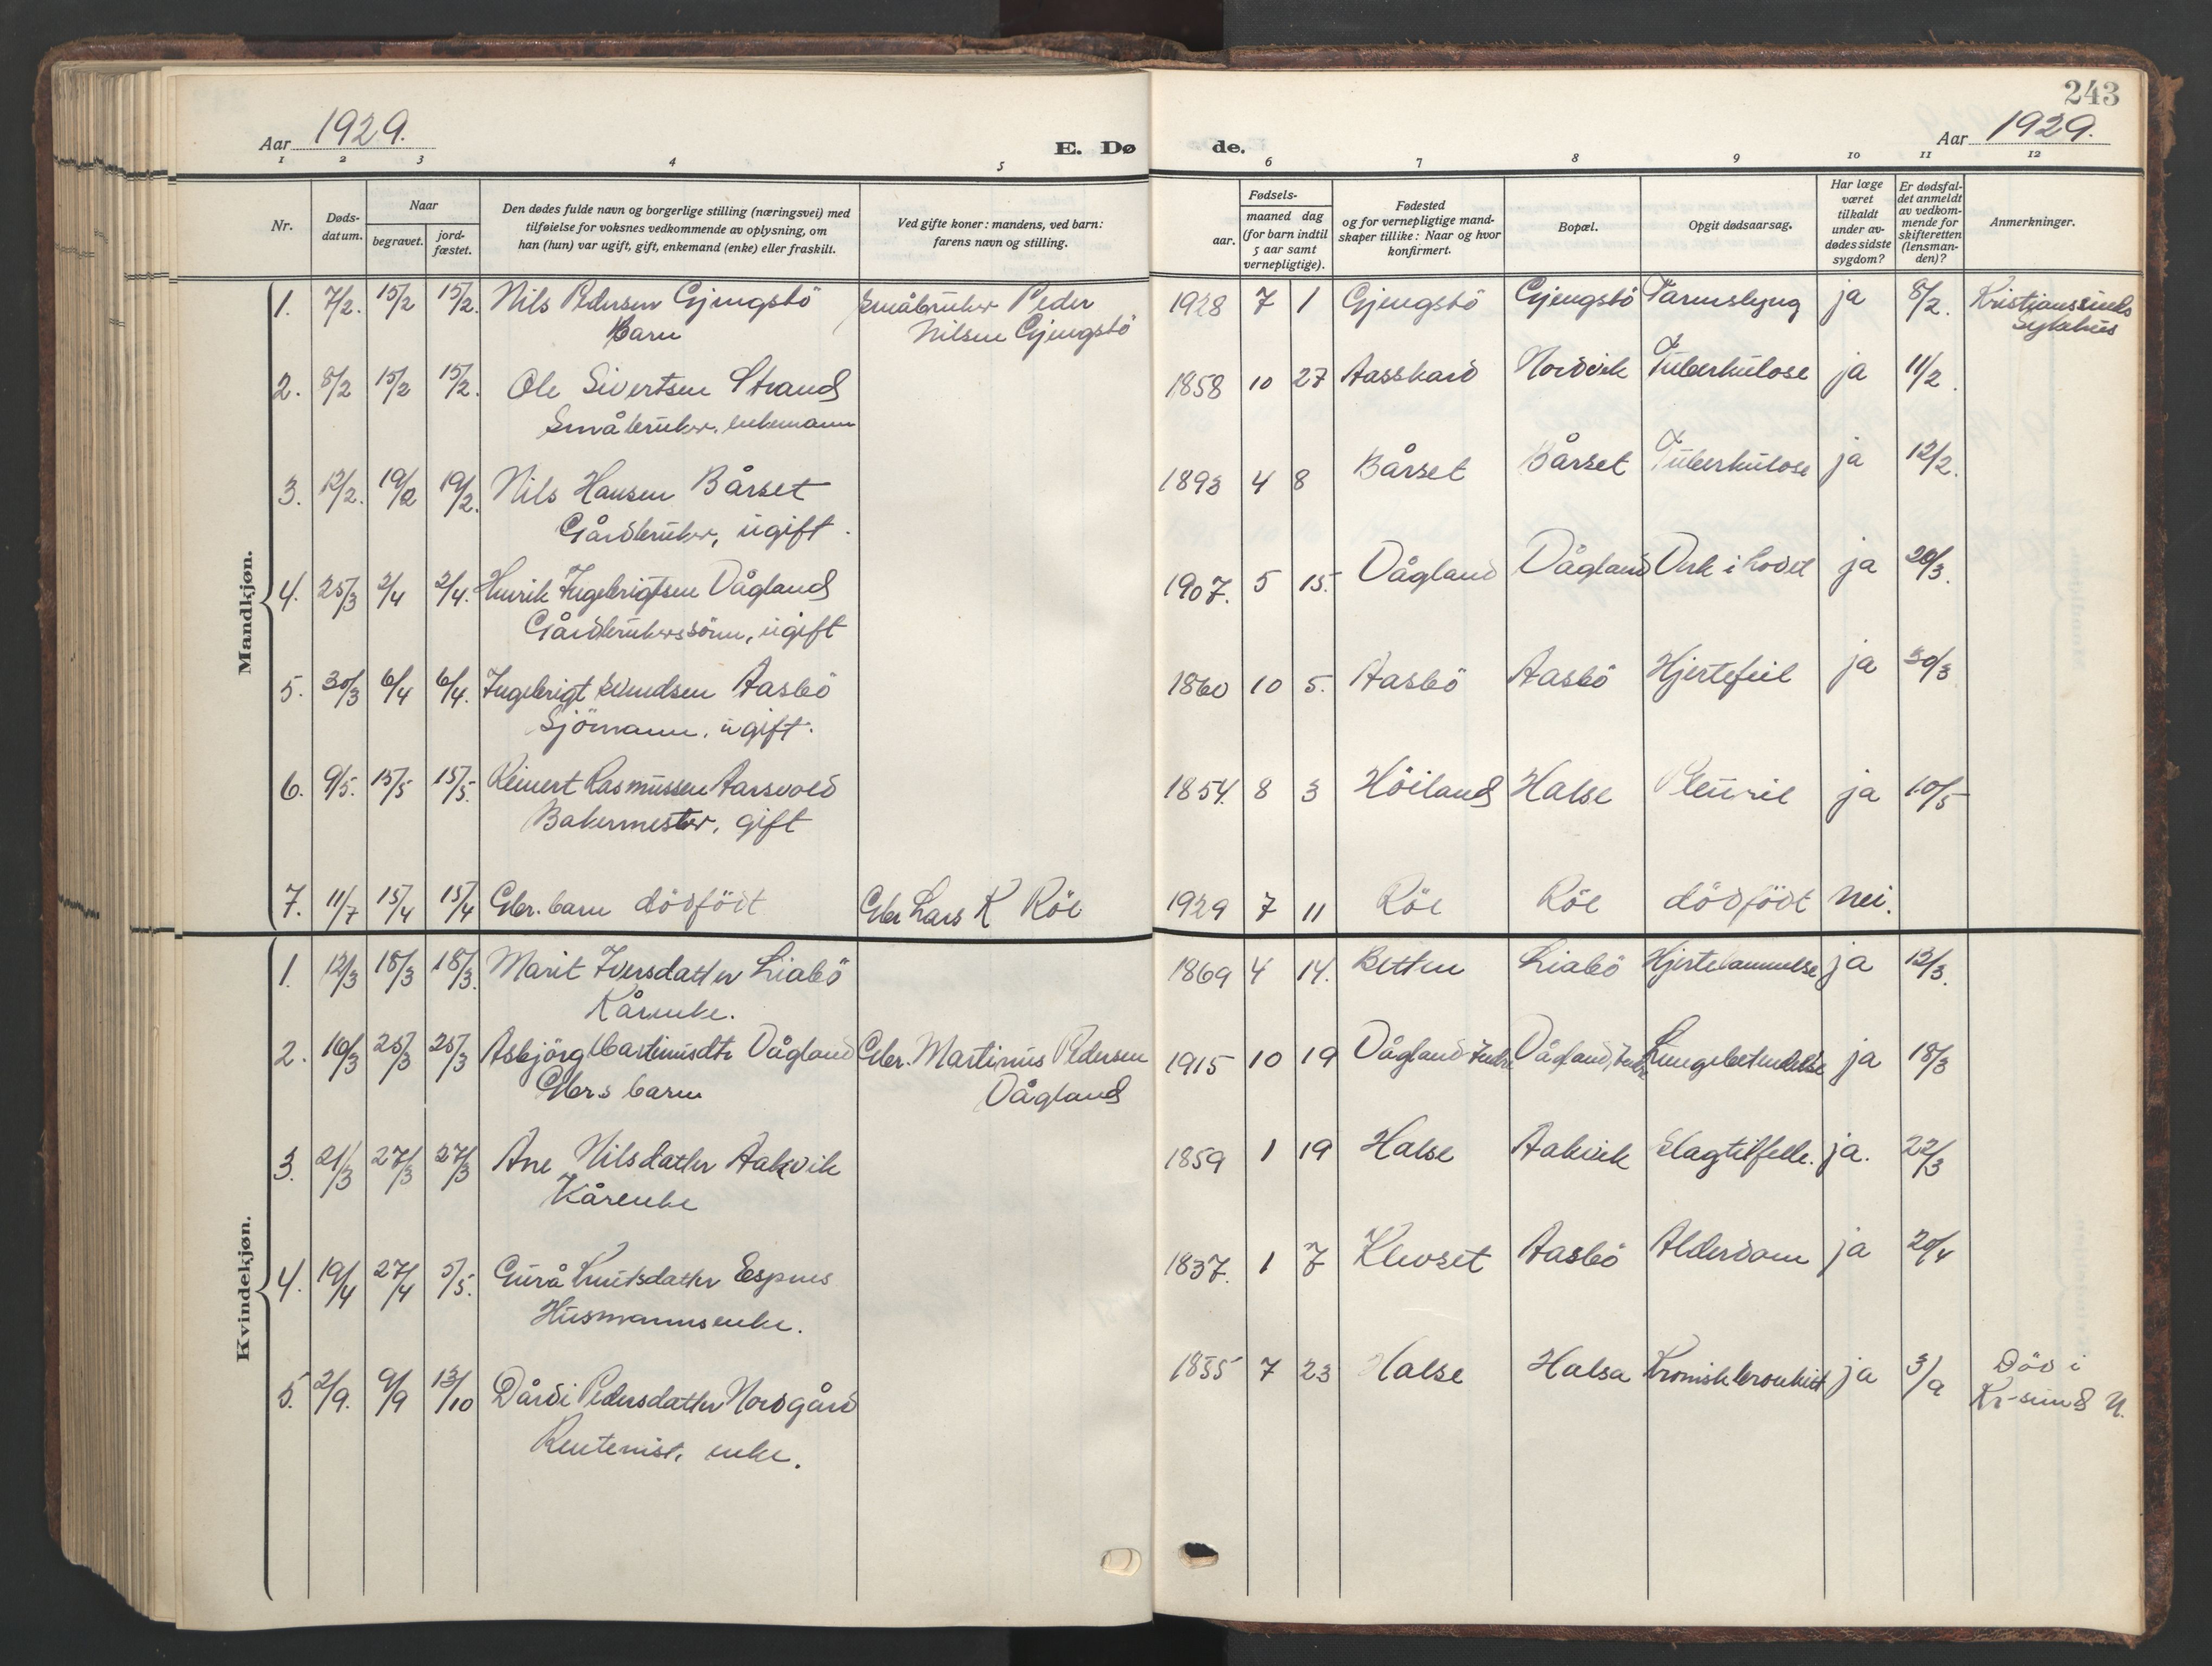 243
Aar 1929.
E. Dø
de.
Aar 1929.
1 2 3 4 5 6 7 8 9 10 11 12
Nr.
Døds-
datum.
Naar
begravet.
jord-
fæstet.
Den dødes fulde navn og borgerlige stilling (næringsvei) med
tilføielse for voksnes vedkommende av oplysning, om
han (hun) var ugift, gift, enkemand (enke) eller fraskilt.
Ved gifte koner: mandens, ved barn:
farens navn og stilling.
Fødsels-
aar.
maaned dag
(for barn indtil
5 aar samt
vernepligtige).
Fødested
og for vernepligtige mand-
skaper tillike: Naar og hvor
konfirmert.
Bopæl.
Opgit dødsaarsag.
Har læge
været
tilkaldt
under av-
dødes sidste
sygdom?
Er dødsfal-
det anmeldt
av vedkom-
mende for
skifteretten
(lensman-
den)?
Anmerkninger.
Mandkjøn.
1. 7/2. 15/2 15/2. Nils Pedersen Gjengstö Småbruker Peder 1928 7 1 Gjengstö Gjengstö Tarmslyng ja 8/2. Kristianssunds
Barn Nilsen Gjengstö Sykehus
2. 8/2 15/2 15/2. Ole Sivertsen Strand 1858 10 27 Aasskard Nordvik Tuberkulose ja 11/2.
Småbruker, enkemann
3. 12/2. 19/2 19/2. Nils Hansen Bårset 1893 4 8 Bårset Bårset Tuberkulose ja 12/2.
Gårdbruker, ugift.
4. 25/3 2/4 2/4. Henrik Ingebrigtsen Vågland 1907. 5 15. Vågland Vågland Verk i hodet ja 26/3.
Gårdbrukerssönn, ugift
5. 30/3 6/4 6/4. Ingebrigt Evendsen Aasbö 1860 10 5. Aasbö Aasbö Hjertefeil ja 30/3
Sjömann, ugift.
6. 9/5. 15/5 15/5. Reinert Rasmussen Aarsvold 1854. 8 3 Höiland Halse Pleurit ja 10/5
Bakermester, gift
7. 11/7 15/4 15/4 Gbr. barn dödfödt Gbr Lars K Röe 1929 7 11 Röe Röe dödfödt nei.
Kvindekjøn.
1. 12/3 18/3 18/3. Marit Iversdatter Liabö 1869 4 14. Betten Liabö Hjertelammelse ja 13/3.
Kårenke.
2. 16/3 25/3 25/3 Asbjörg Martinusdtr Vågland Gbr. Martinus Pedersen 1915 10 19 Vågland Indre Vågland, Indre Lungebetendelse ja 18/3
Gbrs barn Vågland
3. 21/3 27/3 27/3 Ane Nilsdatter Aakvik 1859 1 19 Halse Aakvik Slagtilfelle. ja. 22/3
Kårenke
4. 19/4 27/4 5/5. Gurå Knutsdatter Espnes 1837. 1 7 Klevset Aasbö Alderdom ja 20/4
Husmannsenke.
5. 2/9. 9/9 13/10 Dårdi Pedersdatter Nordgård 1835 7 23 Halse Halsa Kronisk bronkit ja 3/9 Död i
Rentenist. enke. Kr-sund N.